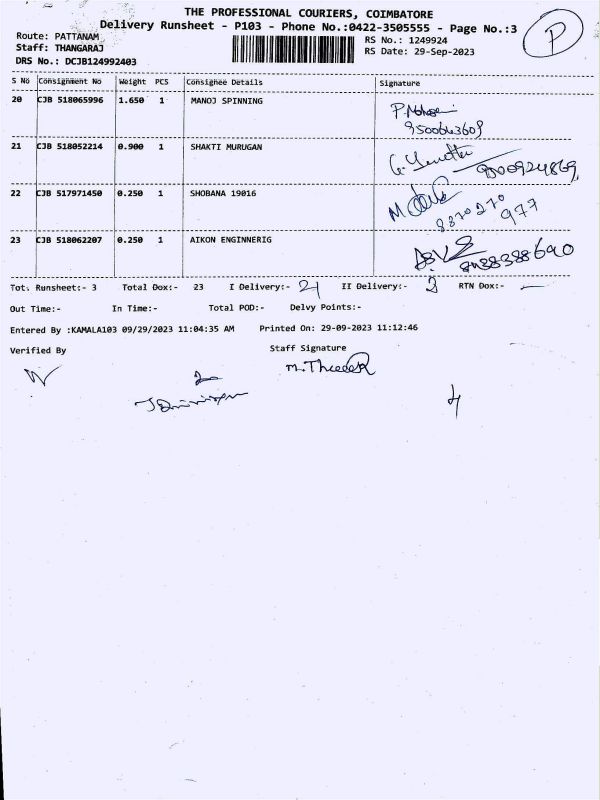 THE PROFESSIONAL COURIERS, COIMBATORE
Delivery Runsheet - P103 - Phone No.:0422-3505555 - Page No.:3
P
Route: PATTANAM
RS No.: 1249924
Staff: THANGARAJ
RS Date: 29-Sep-2023
DRS No.: DCJB124992403
S No Consignment No Weight PCS Consignee Details Signature
20 CJB 518065996 1.650 1 MANOJ SPINNING
9500643609
21 CJB 518052214 0.900 1 SHAKTI MURUGAN
22 CJB 517971450 0.250 1 SHOBANA 19016
8870270
977
23 CJB 518062207 0.250 1 AIKON ENGINNERIG
Tot. Runsheet:- 3 Total Dox:- 23 I Delivery:- 21 II Delivery:- 2 RTN Dox:-
Out Time:- In Time:- Total POD:- Delvy Points:-
Entered By :KAMALA103 09/29/2023 11:04:35 AM Printed On: 29-09-2023 11:12:46
Verified By Staff Signature